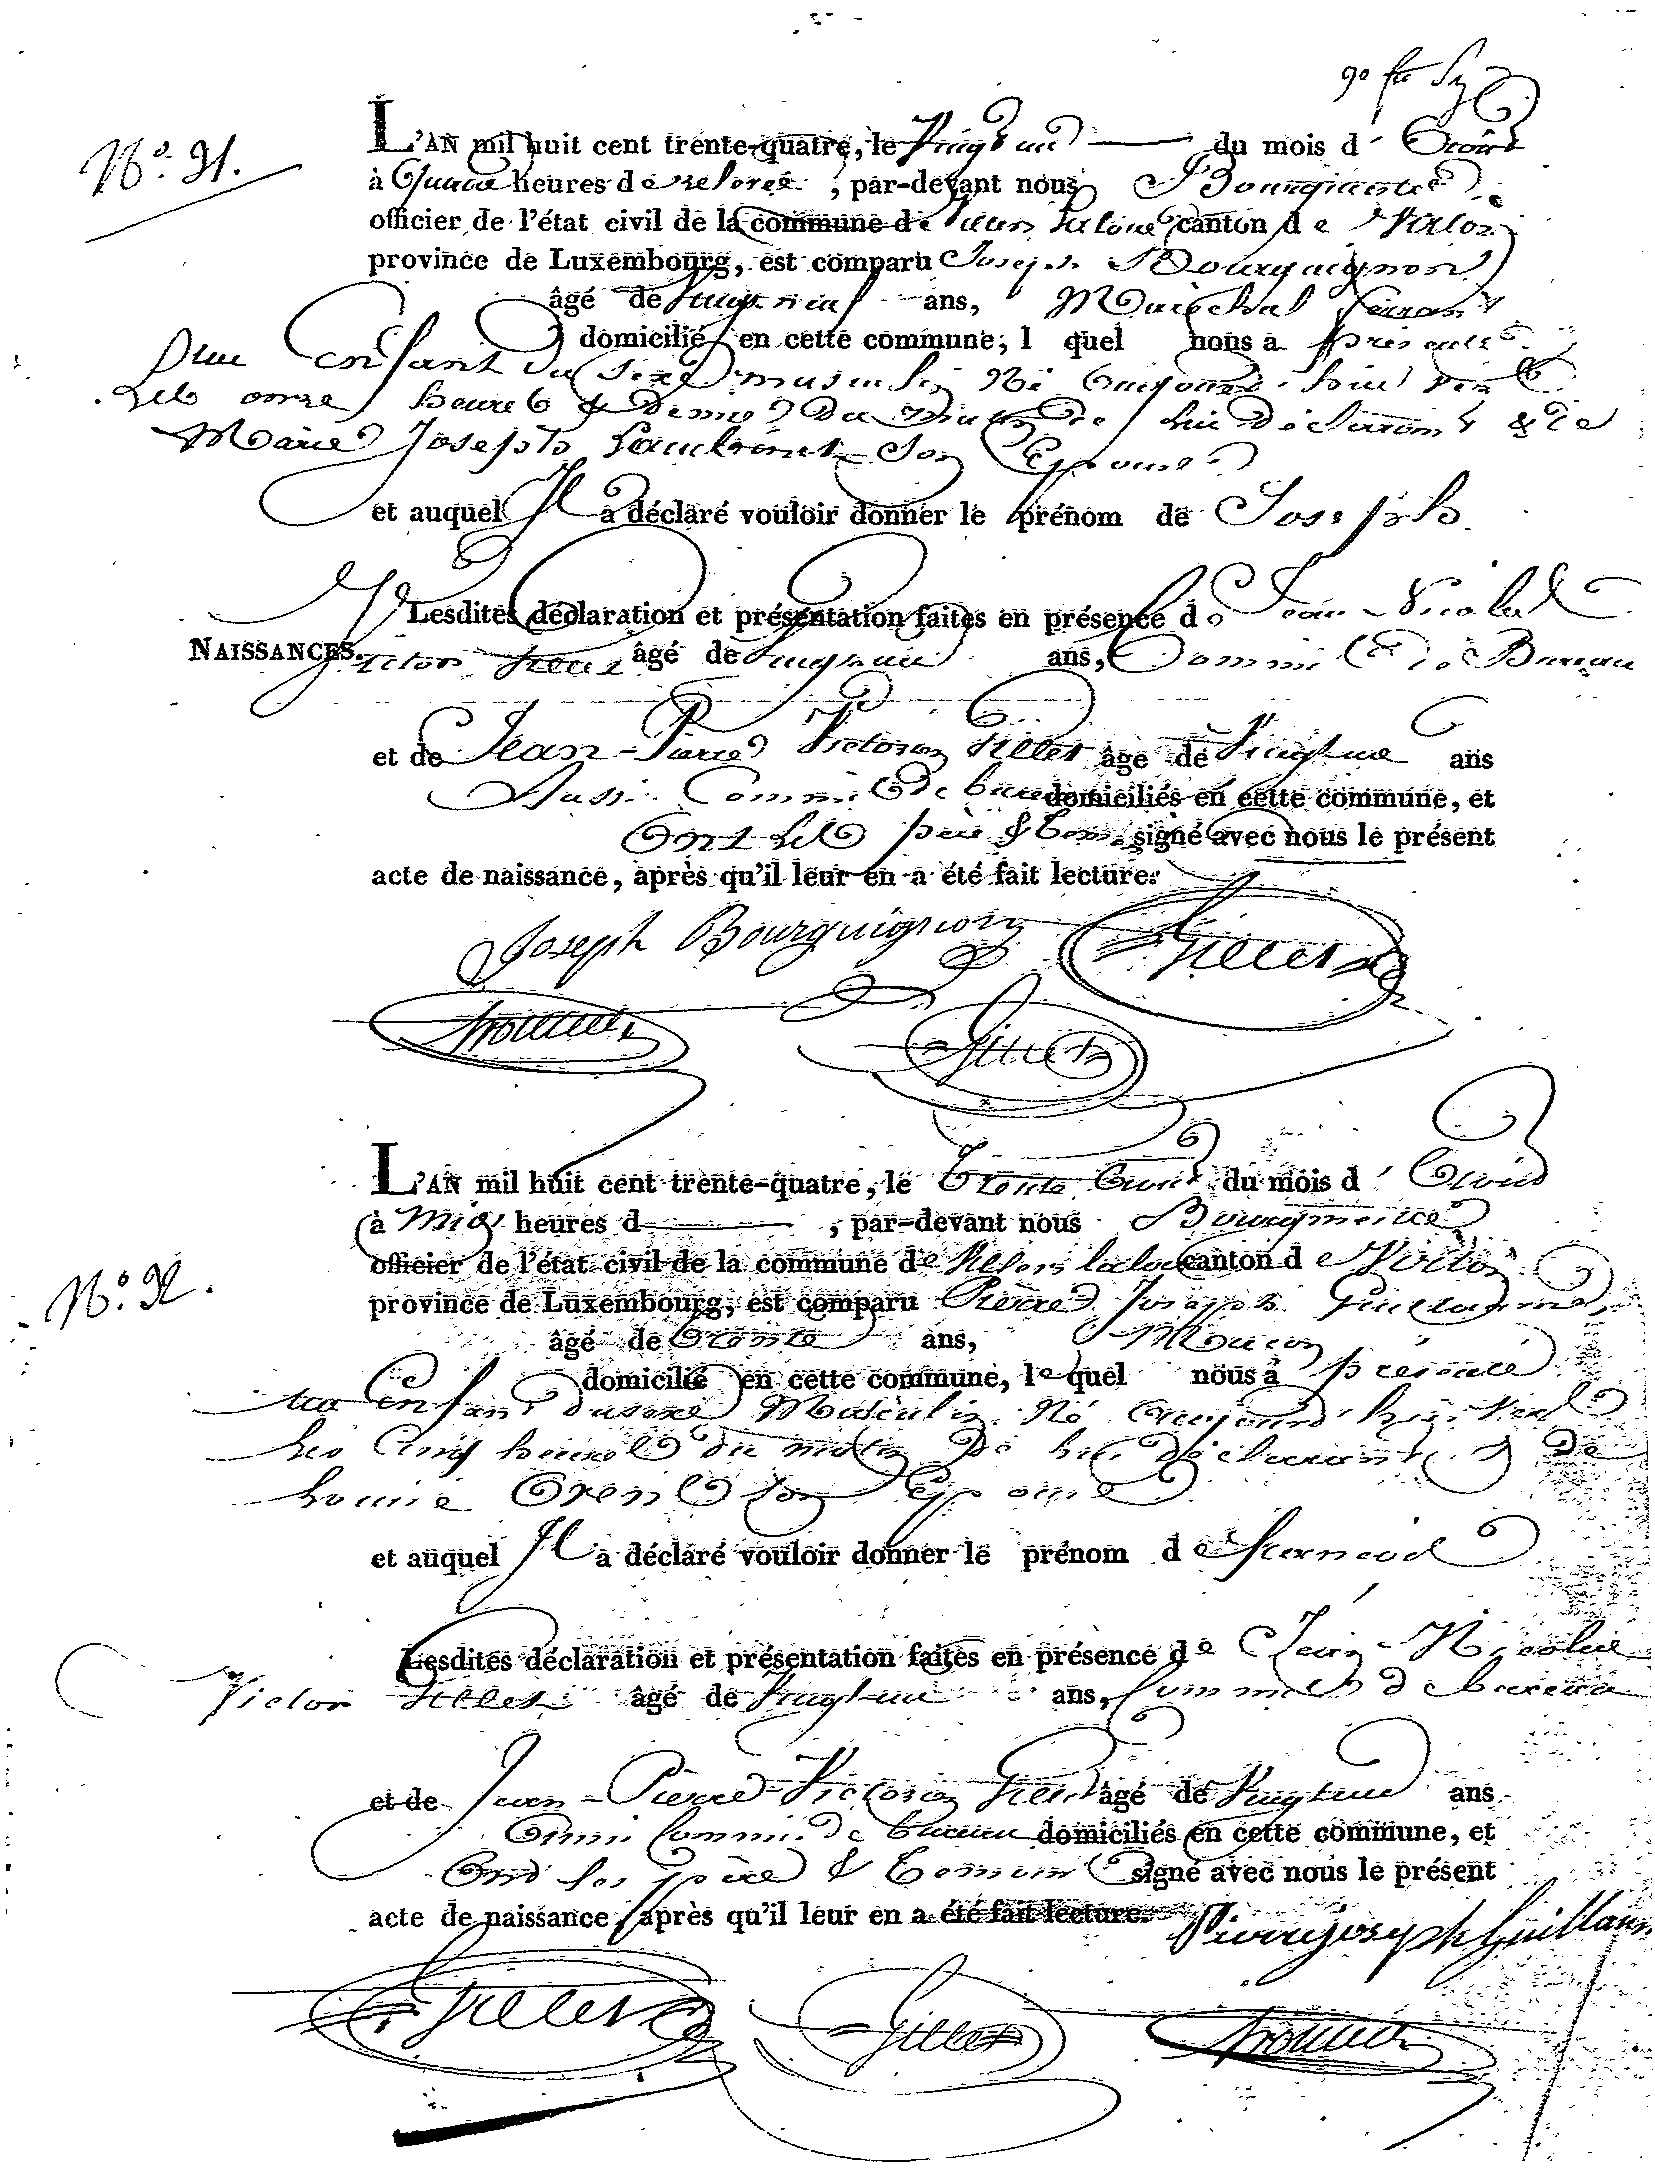 N.º 31.
L'AN mil huit cent trente-quatre, le Vingt un du mois d' Août
à heures de relevée, par-devant nous Bourgmestre
officier de l'état civil de la commune de canton de
province de Luxembourg, est comparu Joseph Bourguignon
âgé de Vingt neuf ans, Maréchal ferrant
domicilié en cette commune, l quel nous a présenté
Un Enfant du Sexe masculin Né aujourd'hui vers
les onze heures & demie du matin de lui déclarant & de
Marie Joseph son Epouse
et auquel Il a déclaré vouloir donner le prénom de Joseph
Lesdites déclaration et présentation faites en présence de Jean Nicolas
NAISSANCES.
Victor Gillet âgé de ans, Commis de Bureau
et de Jean-Pierre Victorin Gillet âgé de ans
Aussi Commis de bureau domiciliés en cette commune, et
Ont les père & tem. signé avec nous le présent
acte de naissance, après qu'il leur en a été fait lecture.
Joseph Bourguignon Gillet
Gillet
L'AN mil huit cent trente-quatre, le Trente du mois d' Août
à Midi heures d , par-devant nous Bourgmestre
N.º 32.
officier de l'état civil de la commune de canton de
province de Luxembourg, est comparu Pierre Joseph Guillaume
âgé de trente ans, Maçon
domicilié en cette commune, le quel nous a présenté
un Enfant du sexe Masculin Né aujourd'hui vers
les cinq heures du matin de lui déclarant & de
Louise son Epouse
et auquel Il a déclaré vouloir donner le prénom de
Lesdites déclaration et présentation faites en présence de Jean Nicolas
Victor Gillet âgé de ans, Commis de bureau
et de Jean-Pierre Victorin Gillet âgé de ans
Aussi Commis de bureau domiciliés en cette commune, et
Ont les père & temoins signé avec nous le présent
acte de naissance, après qu'il leur en a été fait lecture.
Pierre joseph Guillaum
Gillet Gillet